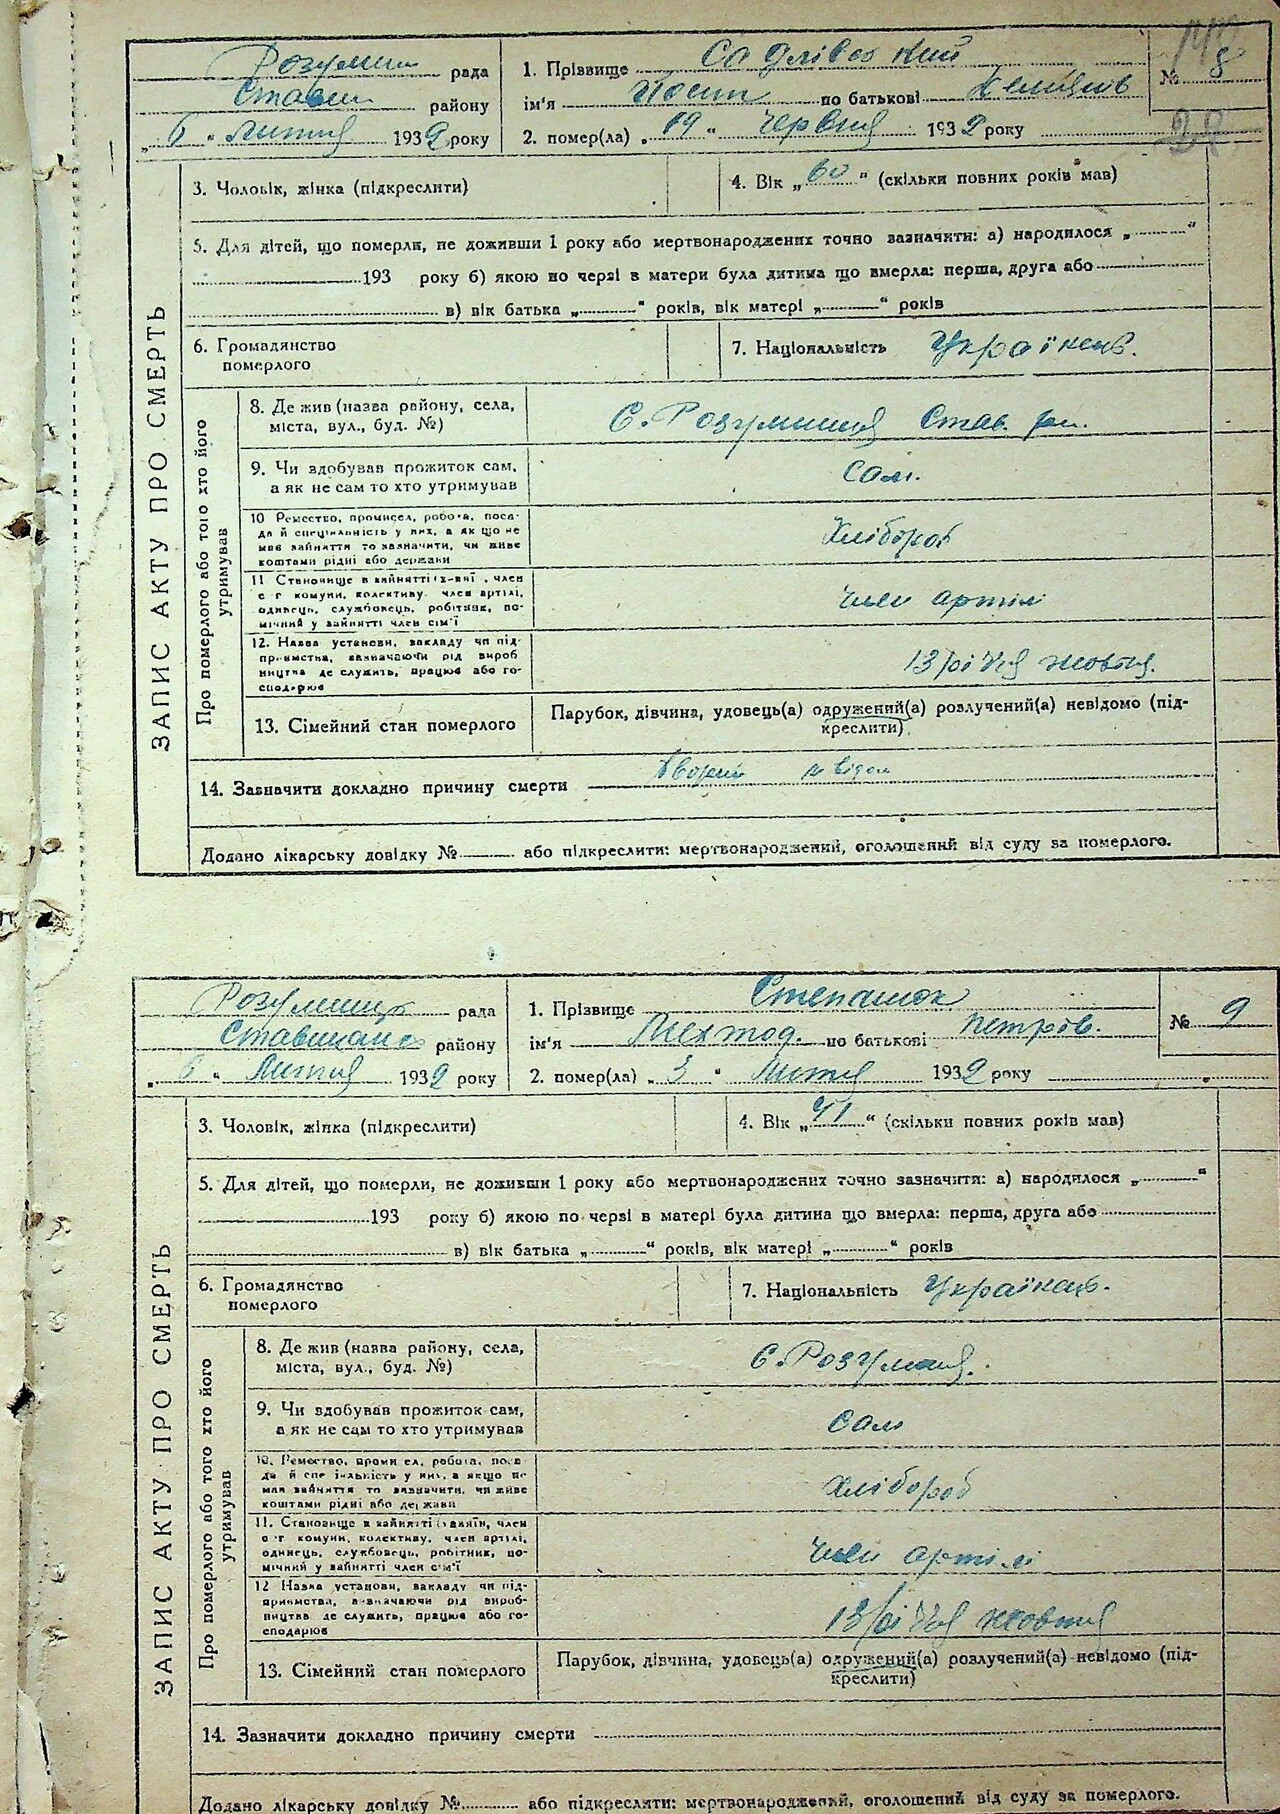 Розумниц рада
Ставищ району
„ 6 " Лютия 1932 року
1. Прізвище
ім'я Йосип по батькові
2. помер(ла) „ 19 " Червня 1932 року
№ 8
ЗАПИС АКТУ ПРО СМЕРТЬ
3. Чоловік, жінка (підкреслити)
4. Вік „ 60 " (скільки повних років мав)
5. Для дітей, що померли, не доживши 1 року або мертвонароджених точно зазначити: а) народилося „ "
193 року б) якою по черзі в матери була дитина що вмерла: перша, друга або
в) вік батька „ " років, вік матері „ " років
6. Громадянство
померлого
7. Національність Українець.
Про померлого або того хто його
утримував
8. Де жив (назва району, села,
міста, вул., буд. №)
С. Розумниця Став. рн.
9. Чи здобував прожиток сам,
а як не сам то хто утримував
сам.
10 Ремество, промисел, робота, поса-
да й спеціяльність у них, а як що не
мав зайняття то зазначити, чи живе
коштами рідні або держави
Хлібороб
11 Становище в зайнятті (х-вяї , член
с г комуни, колективу член артілі,
одинець, службовець, робітник, по-
мічний у зайнятті член сім'ї
член артілі
12. Назва установи, закладу чи під-
приємства, зазначаючи рід вироб
ництва де служить, працює або го-
сподарює
13/річчя жовтня.
13. Сімейний стан померлого
Парубок, дівчина, удовець(а) одружений(а) розлучений(а) невідомо (під-
креслити)
14. Зазначити докладно причину смерти
Додано лікарську довідку № або підкреслити: мертвонароджений, оголошений від суду за померлого.
Розумниць рада
району
„ 6 " Лютия 1932 року
1. Прізвище Степанюк
ім'я Мехтод. по батькові Петров.
2. помер(ла) „ 3 " Лютия 1932 року
№ 9
ЗАПИС АКТУ ПРО СМЕРТЬ
3. Чоловік, жінка (підкреслити)
4. Вік „ 41 " (скільки повних років мав)
5. Для дітей, що померли, не доживши 1 року або мертвонароджених точно зазначити: а) народилося „ "
193 року б) якою по черзі в матері була дитина що вмерла: перша, друга або
в) вік батька „ " років, вік матері „ " років
6. Громадянство
померлого
7. Національність Українець.
Про померлого або того хто його
утримував
8. Де жив (назва району, села,
міста, вул., буд. №)
С. Розумниця.
9. Чи здобував прожиток сам,
а як не сам то хто утримував
сам
10. Ремество, проми ел, робота, поса
да й спе іяльність у них, а якщо не
мав зайняття то зазначити, чи живе
коштами рідні або держави
хлібороб
11. Становище в зайнятті (хазяїн, член
с-г комуни, колективу, член артілі,
одинець, службовець, робітник, по-
мічний у зайнятті член сім'ї
член артілі
12 Назва установи, закладу чи під-
приємства, зазначаючи рід вироб-
ництва де служить, працює або го-
сподарює
13/річчя жовтня
13. Сімейний стан померлого
Парубок, дівчина, удовець(а) одружений(а) розлучений(а) невідомо (під-
креслити)
14. Зазначити докладно причину смерти
Додано лікарську довідку № або підкреслити: мертвонароджений, оголошений від суду за померлого.